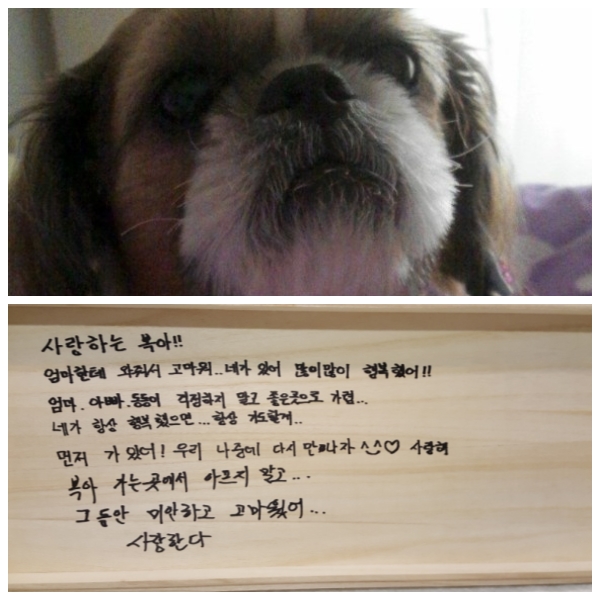 사랑하는 복아!!
엄마한테 와줘서 고마워..네가 있어 많이많이 행복했어!!
엄마.아빠.동동이 걱정하지 말고 좋은곳으로 가렴...
네가 항상 행복했으면...항상 기도할게..
먼저 가 있어! 우리 나중에 다시 만나자 ^^♡ 사랑해
복아 가는곳에서 아프지 말고...
그동안 미안하고 고마웠어...
사랑한다